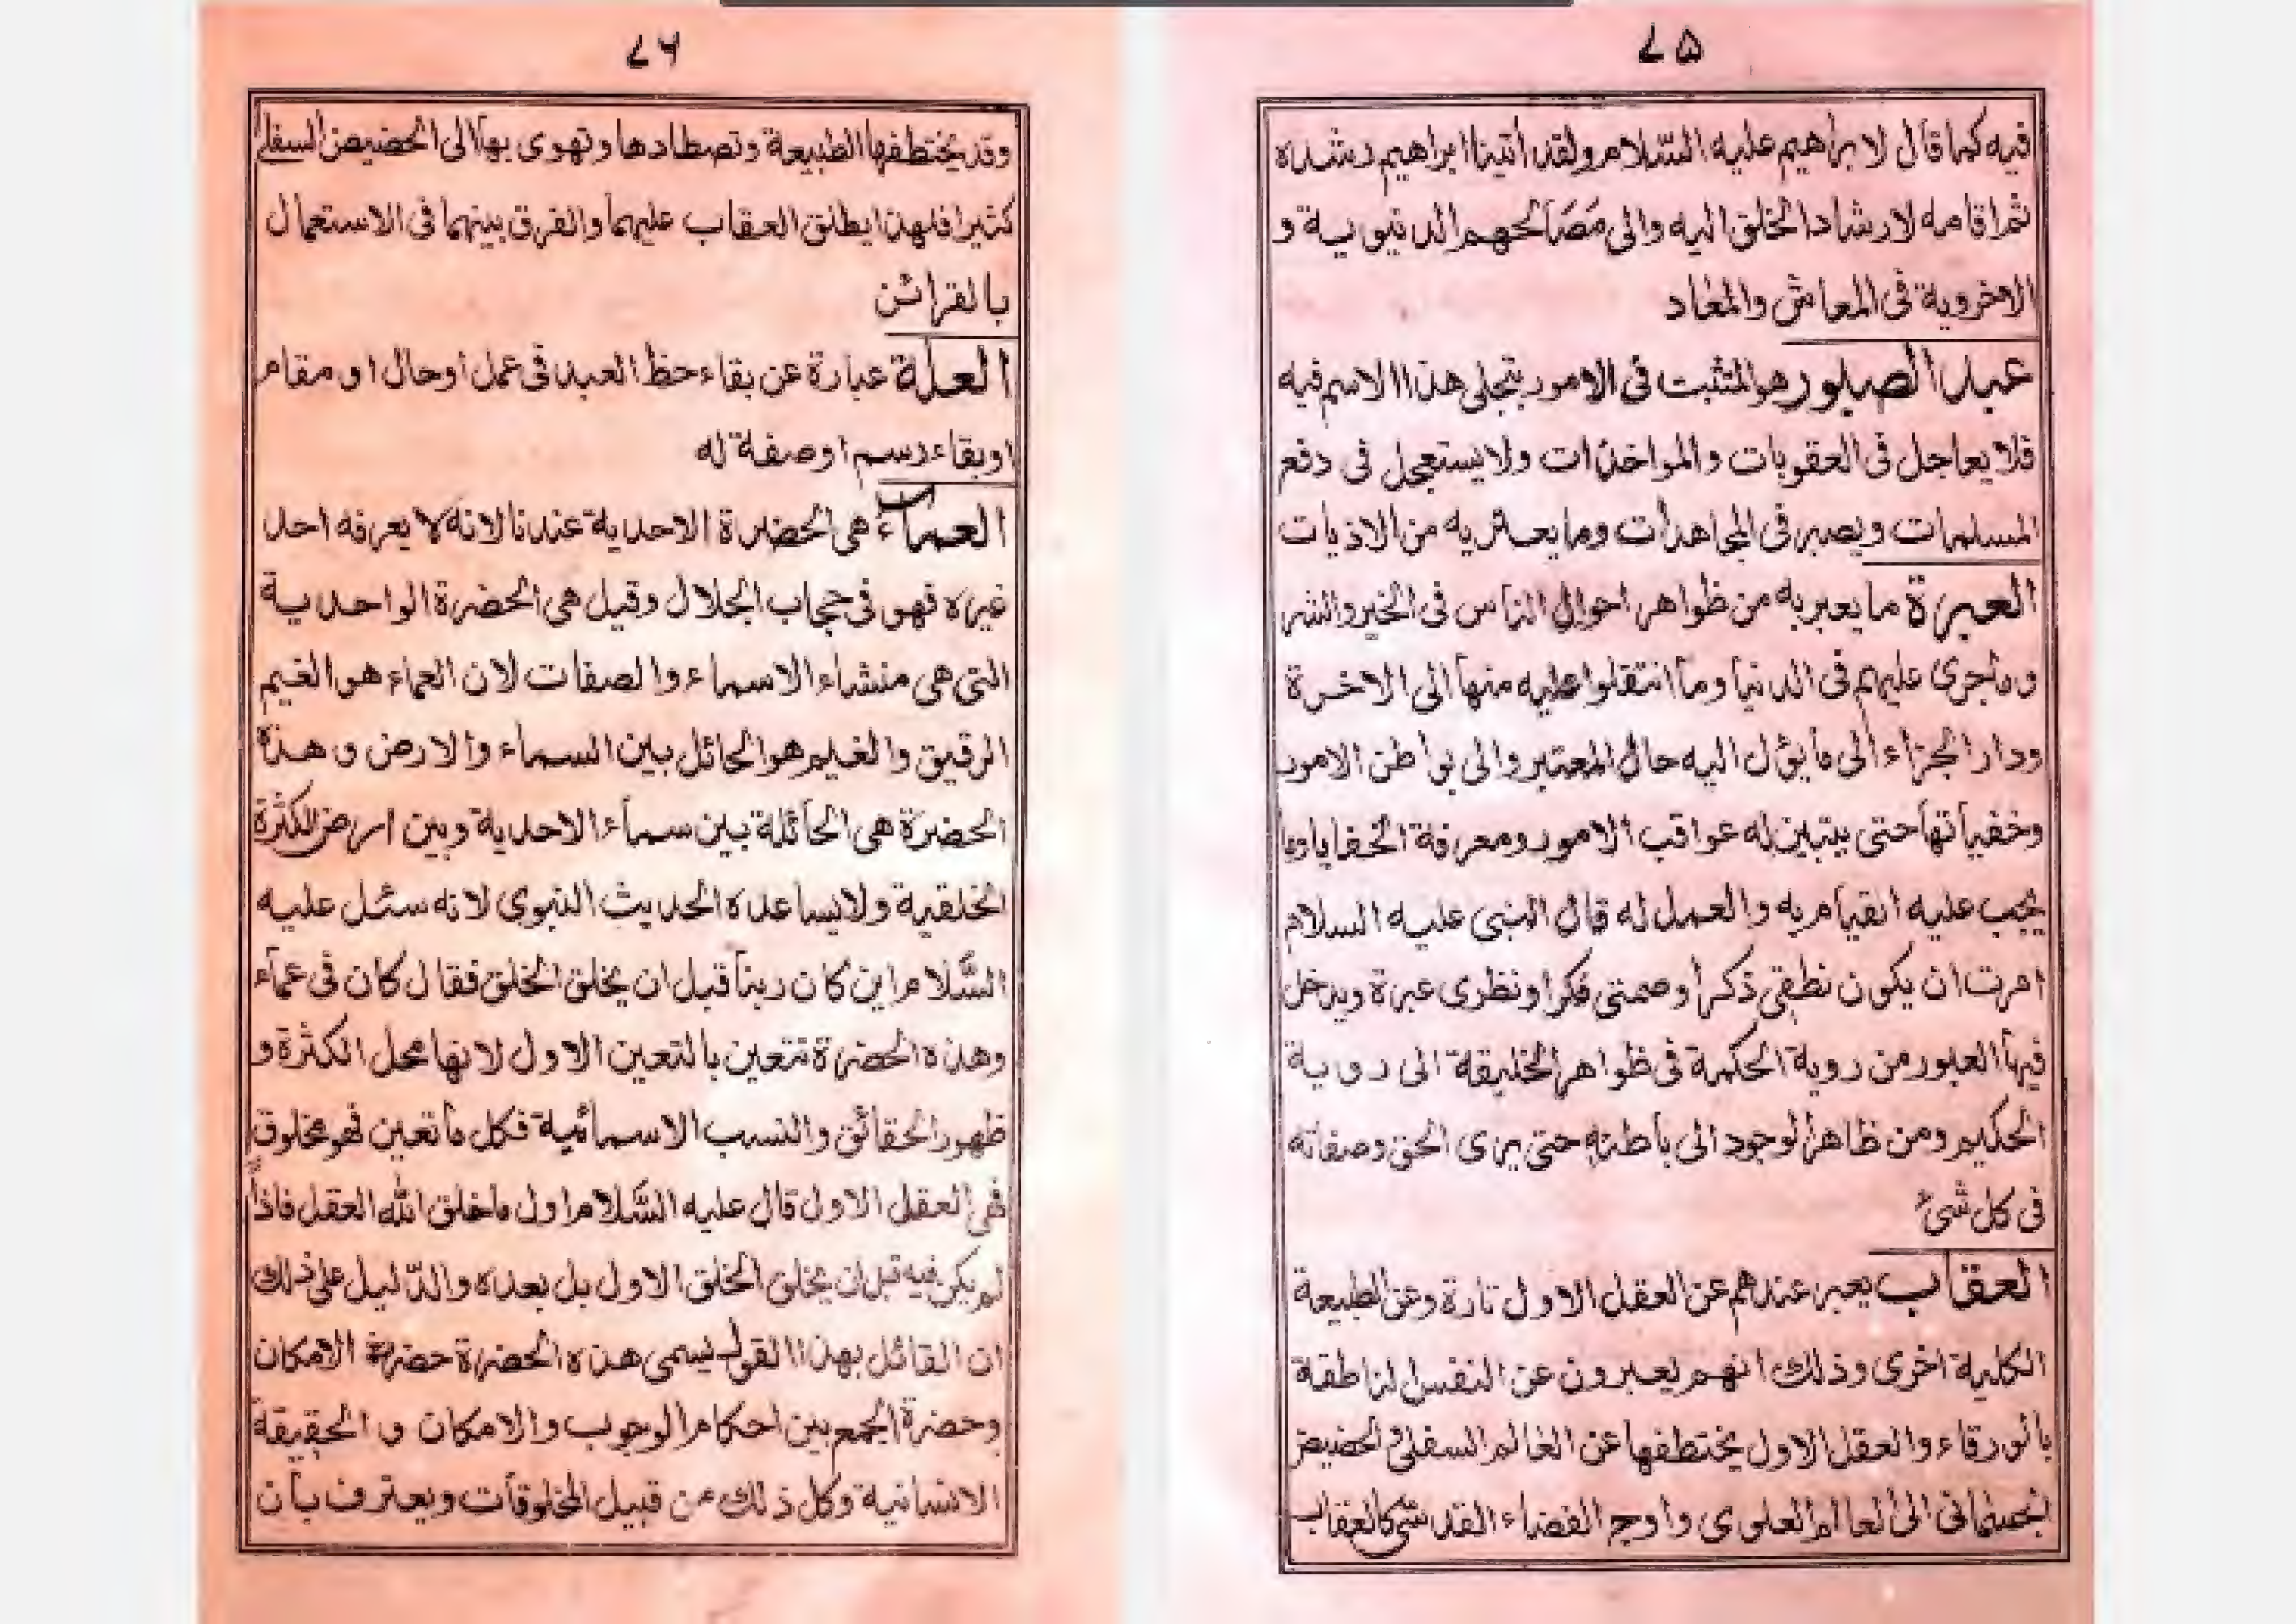 ۷۵
فيه كما قال لابراهيم عليه السّلام ولقد أتينا ابراهيم رشده
ثم اقامه لارشاد الخلق اليه والى مَصَالحهم الدنيوية و
الاخروية فى المعاش والمعاد
عبد الصبور هو المتثبت فى الامور بتجلى هذا الاسم فيه
فلا يعاجل فى العقوبات والمواخذات ولا يستعجل فى دفع
المسلمات ويصبر فى المجاهدات وما يعتريه من الاذيات
العبرة ما يعبر به من ظواهر احوال الناس فى الخير والشر
وماجرى عليهم فى الدنيا وما انتقلوا عليه منها الى الاخرة
ودار الجزاء الى ما يؤل اليه حال المعتبر والى بواطن الامور
وخفياتها حتى يتبين له عواقب الامور ومعرفة الخفايا وما
يجب عليه القيام به والعمل له قال النبى عليه السلام
امرت ان يكون نطقى ذكرا وصمتى فكرا ونظرى عبرة ويدخل
فيها العبور من روية الحكمة فى ظواهر الخليقة الى روية
الحكيم ومن ظاهر الوجود الى باطنه حتى يرى الحق وصفاته
فى كل شئ
العقاب يعبر عندهم عن العقل الاول تارة وعن الطبيعة
الكلية اخرى وذلك انهم يعبرون عن النفس الناطقة
بالورقاء والعقل الاول يختطفها عن العالم السفلى والحضيض
الجسمانى الى العالم العلوى واوج الفضاء القدسى كالعقاب
۷۶
وقد يختطفها الطبيعة وتصطادها وتهوى بها الى الحضيض السفلى
كثيرا فلهذا يطلق العقاب عليهما والفرق بينهما فى الاستعمال
بالقرائن
العلة عبارة عن بقاء حظ العبد فى عمل اوحال او مقام
اوبقاء رسم اوصفة له
العماء هى الحضرة الاحدية عندنا لانه لا يعرفه احد
غيره فهو فى حجاب الجلال وقيل هى الحضرة الواحدية
التى هى منشاء الاسماء والصفات لان العماء هو الغيم
الرقيق والغيم هو الحائل بين السماء والارض و هذه
الحضرة هى الحائلة بين سماء الاحدية وبين ارض الكثرة
الخلقية ولا يساعده الحديث النبوى لانه سئل عليه
السّلام اين كان ربنا قبل ان يخلق الخلق فقال كان فى عماء
وهذه الحضرة تتعين بالتعين الاول لانها محل الكثرة و
ظهور الحقائق والنسب الاسمائية فكل ما تعين فهو مخلوق
فهى العقل الاول قال عليه السّلام اول ماخلق الله العقل فاذاً
لم يكن فيه قبل ان يخلق الخلق الاول بل بعده والدّليل على ذلك
ان القائل بهذا القول يسمى هذه الحضرة حضرة الامكان
وحضرة الجمع بين احكام الوجوب والامكان و الحقيقة
الانسانية وكل ذلك من قبيل المخلوقات ويعترف بان